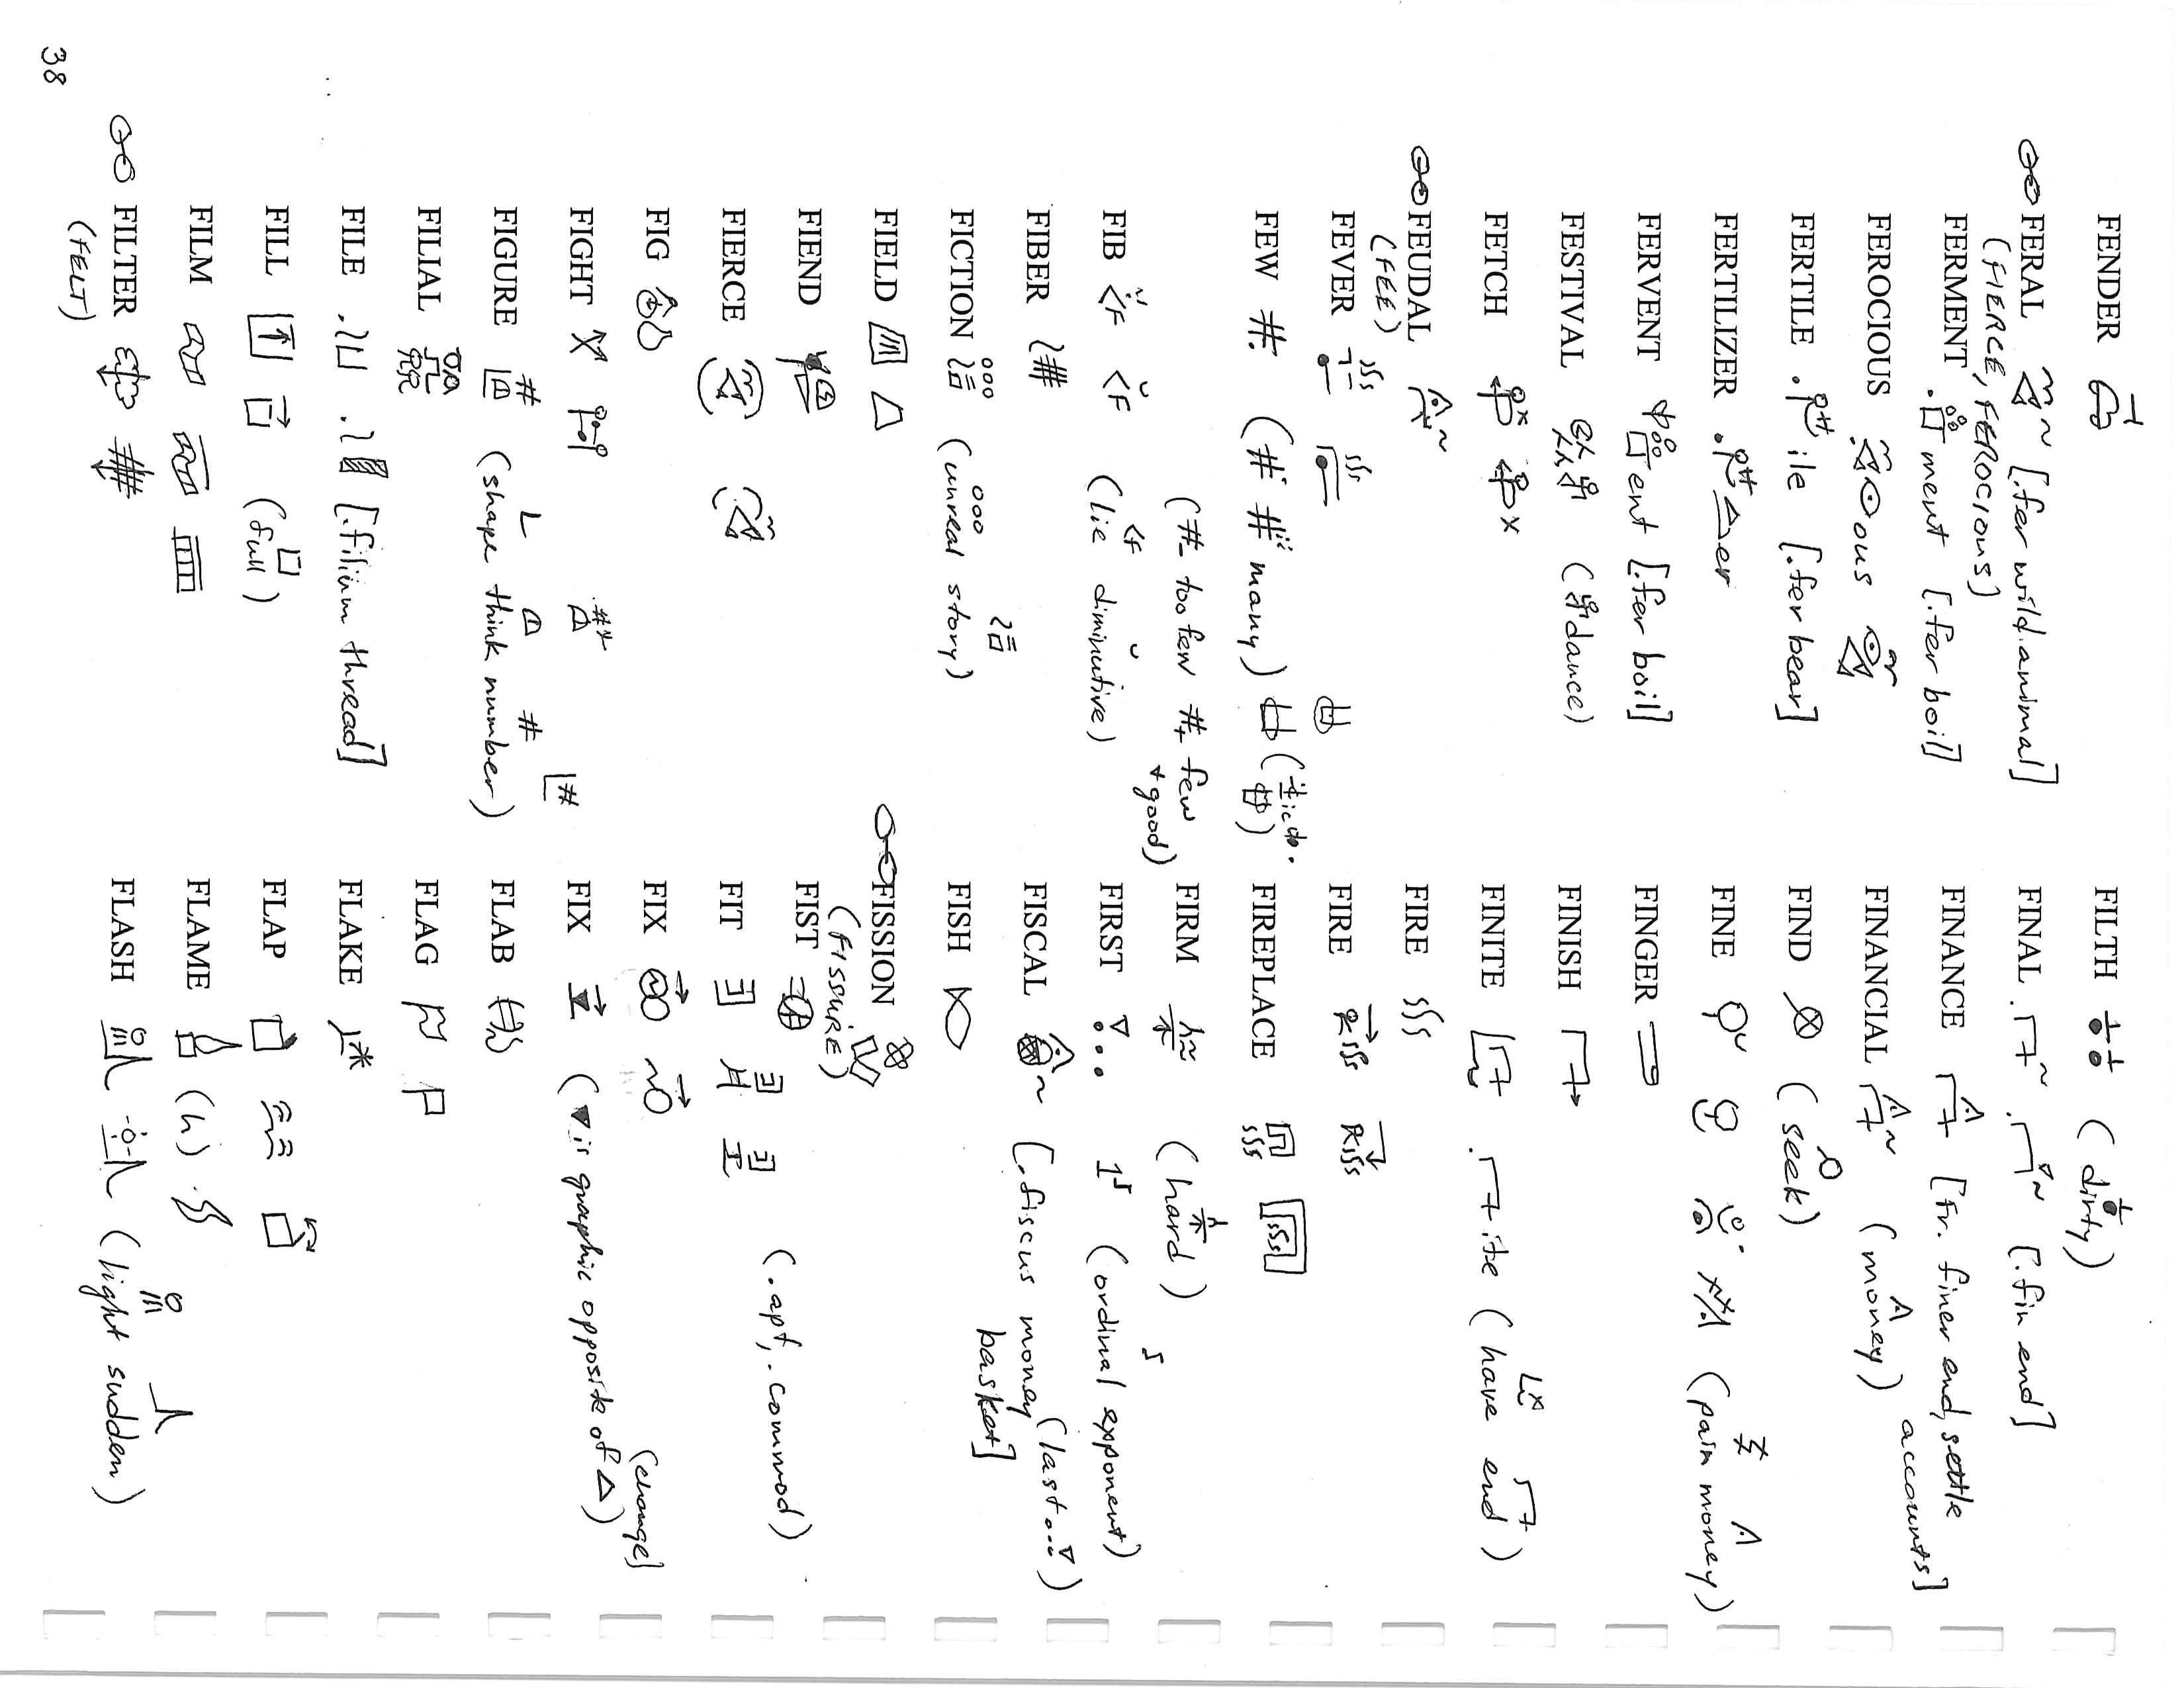 FENDER
FERAL [.fer wild.animal]
(FIERCE, FEROCIOUS)
FERMENT ment [.fer boil]
FEROCIOUS ous or
FERTILE ile [.fer bear]
FERTILIZER er
FERVENT ent [.fer boil]
FESTIVAL (dance)
FETCH
FEUDAL
(FEE)
FEVER
FEW #: (#: # many)
(#- too few #+ few + good)
FIB (lie diminutive)
FIBER
FICTION (unreal story)
FIELD
FIEND
FIERCE
FIG
FIGHT
FIGURE # (shape think number)
FILIAL
FILE [.filium thread]
FILL (full)
FILM
FILTER
(FELT)
FILTH (dirty)
FINAL [.fin end]
FINANCE [Fr. finer end, settle accounts]
FINANCIAL (money)
FIND (seek)
FINE (pain money)
FINGER
FINISH
FINITE ite (have end)
FIRE
FIRE
FIREPLACE
FIRM (hard)
FIRST (ordinal exponent)
FISCAL [.fiscus money basket] (last...)
FISH
FISSION
(FISSURE)
FIST
FIT (.apt, .commod)
FIX (change)
FIX (▼ is graphic opposite of △)
FLAB
FLAG
FLAKE
FLAP
FLAME (h)
FLASH (light sudden)
38